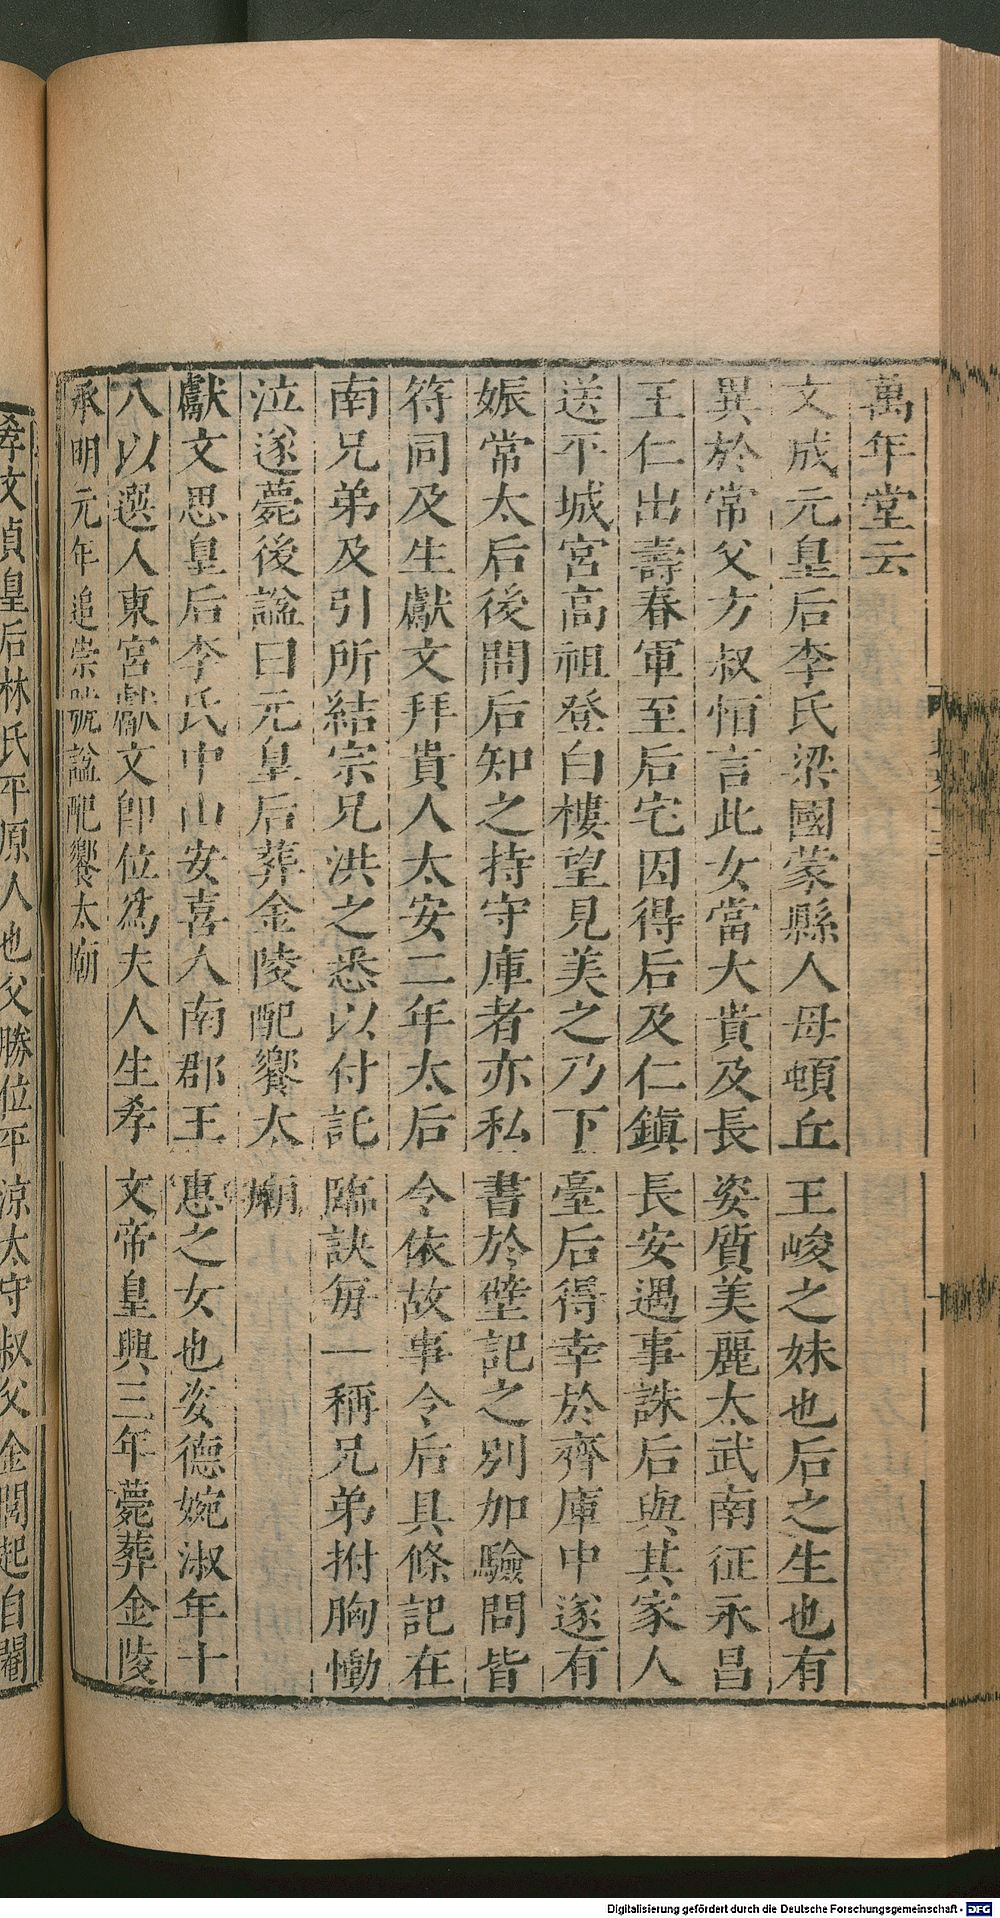 萬年堂云
文成元皇后李氏梁國蒙縣人母頓丘王峻之妹也后之生也有
異於常父方叔恒言此女當大貴及長姿質美麗太武南征永昌
王仁出壽春軍至后宅因得后及仁鎮長安遇事誅后與其家人
送平城宮高祖登白樓望見美之乃下臺后得幸於齊庫中遂有
娠常太后後問后知之持守庫者亦私書於壁記之別加驗問皆
符同及生獻文拜貴人太安二年太后令依故事令后具條記在
南兄弟及引所結宗兄洪之悉以付託臨訣每一稱兄弟拊胸慟
泣遂薨後諡曰元皇后葬金陵配饗太廟
獻文思皇后李氏中山安喜人南郡王惠之女也姿德婉淑年十
八以選入東宮獻文即位為夫人生孝文帝皇興三年薨葬金陵
承明元年追崇號諡配饗太廟
孝文貞皇后林氏平原人也父勝位平涼太守叔父金閭起自閹
Digitalisierung gefördert durch die Deutsche Forschungsgemeinschaft - DFG